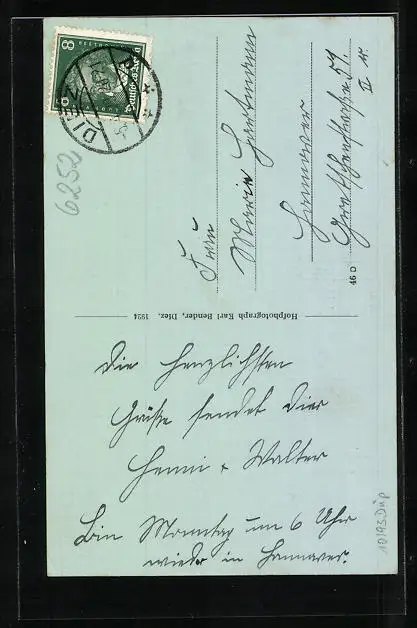 8
BEETHOVEN
8
Deutsches Reich
DIEZ
6252
Frau
Maria Hartmann
Hannover
II r.
46 D
Hofphotograph Karl Bender, Diez. 1924
Die herzlichsten
Grüße sendet Dier
Henni + Walter
Bin Montag um 6 Uhr
wieder in Hannover.